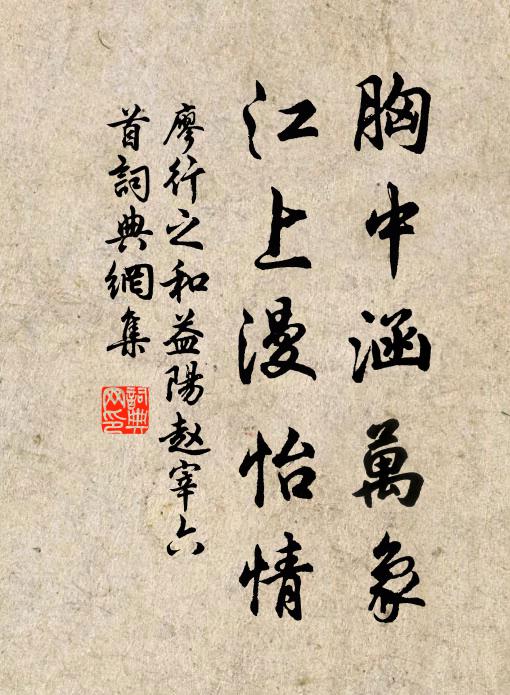 胸中涵萬象
江上漫怡情
廖行之和益陽赵宰六
首詞典網集
詞典网印